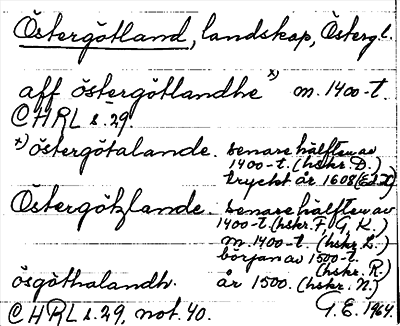 Östergötland, landskap, Östergl.
aff östergötlandhe x) m. 1400-t.
CHRL s. 29.
x) östergötalande. senare hälften av
1400-t. (hskr. D.)
tryckt år 1608
Östergötzlande. senare hälften av
1400-t. (hskr. F. G. K.)
m. 1400-t. (hskr. L.)
början av 1500-t.
(hskr. R.)
ösgöthalandh. år 1500. (hskr. N.)
CHRL s. 29, not. 40. G. E. 1964.